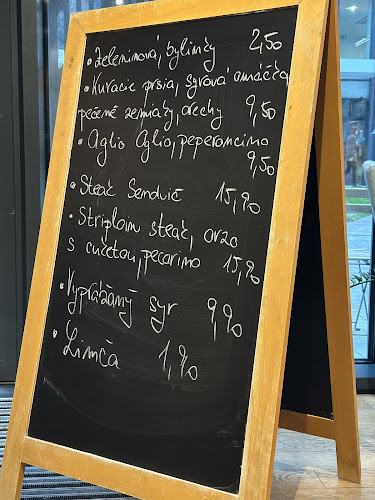 • Zeleninová, bylinky 2,50
• Kuracie prsia, syrová omáčka,
pečené zemiaky, orechy 9,50
• Aglio Oglio, peperoncino
9,50
• Steak Sendvič 15,90
• Striploin steak, orzo
s cuketou, pecorino 15,90
• Vyprážaný syr 9,90
• Limča 1,90